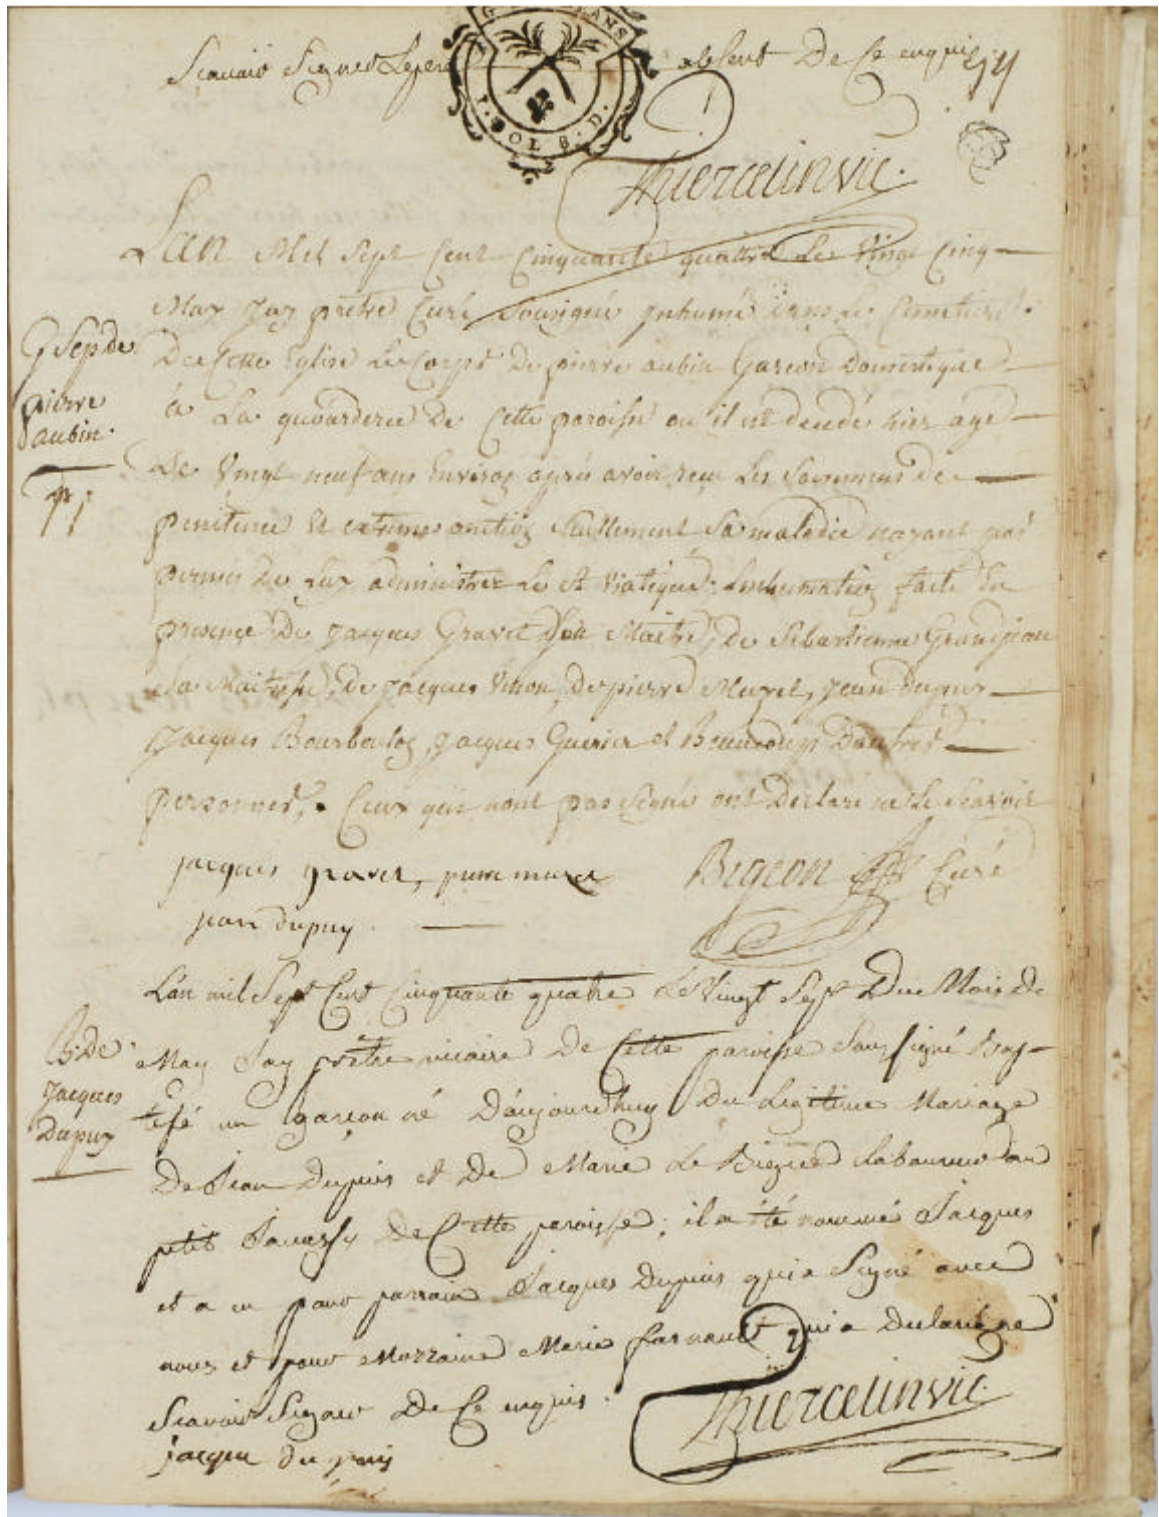 Scavoir Signer Le pere absent De Ce enquis
G ANS
1 SOL 8 D.
Thiercelin vic.
Lan Mil Sept Cent Cinquante quattre Le Vingt Cinq
May Jay prêtre Curé Sousigné Inhumé dans Le Cemetiere
De Cette Eglise Le Corps De pierre aubin Garson Domestique
a La De Cette paroisse ou il est decedé hier age
De Vingt neuf ans Environ apres avoir recu Les Sacremens de
penitence et extreme onction Seullement Sa maladie nayant pas
permis De Luy administrer Le st Viatique; Linhumation faite En
presence De Jacques Gravet Son Maitre, de Sebastienne Grandjean
Sa Maitresse, de Jacques de pierre Muzet, Jean Dupuy
Jacques Bourbolon Jacques Guerier et Beaucoup Dautres
personnes. Ceux qui nont pas Signé ont Declaré ne Le Scavoir
G Sep de
pierre
aubin.
jacques gravet, pierre muzet
Bigeon Curé
jean dupuy.
Lan mil Sept Cent Cinquante quatre Le Vingt Sept Du Mois de
May Jay prêtre vicaire De Cette paroisse Sous signé Bap
tisé un garcon né D'aujourd'huy Du Legitime Mariage
De Jean Dupuis et De Marie Le Laboureur au
petit De Cette paroisse; il a été nommé Jacques
et a eu pour parrain Jacques Dupuis qui a Signé avec
nous et pour Marraine Marie qui a Declaré ne
Scavoir Signer De Ce enquis.
B. De
Jacques
Dupuy
Thiercelin vic.
jacque du puis